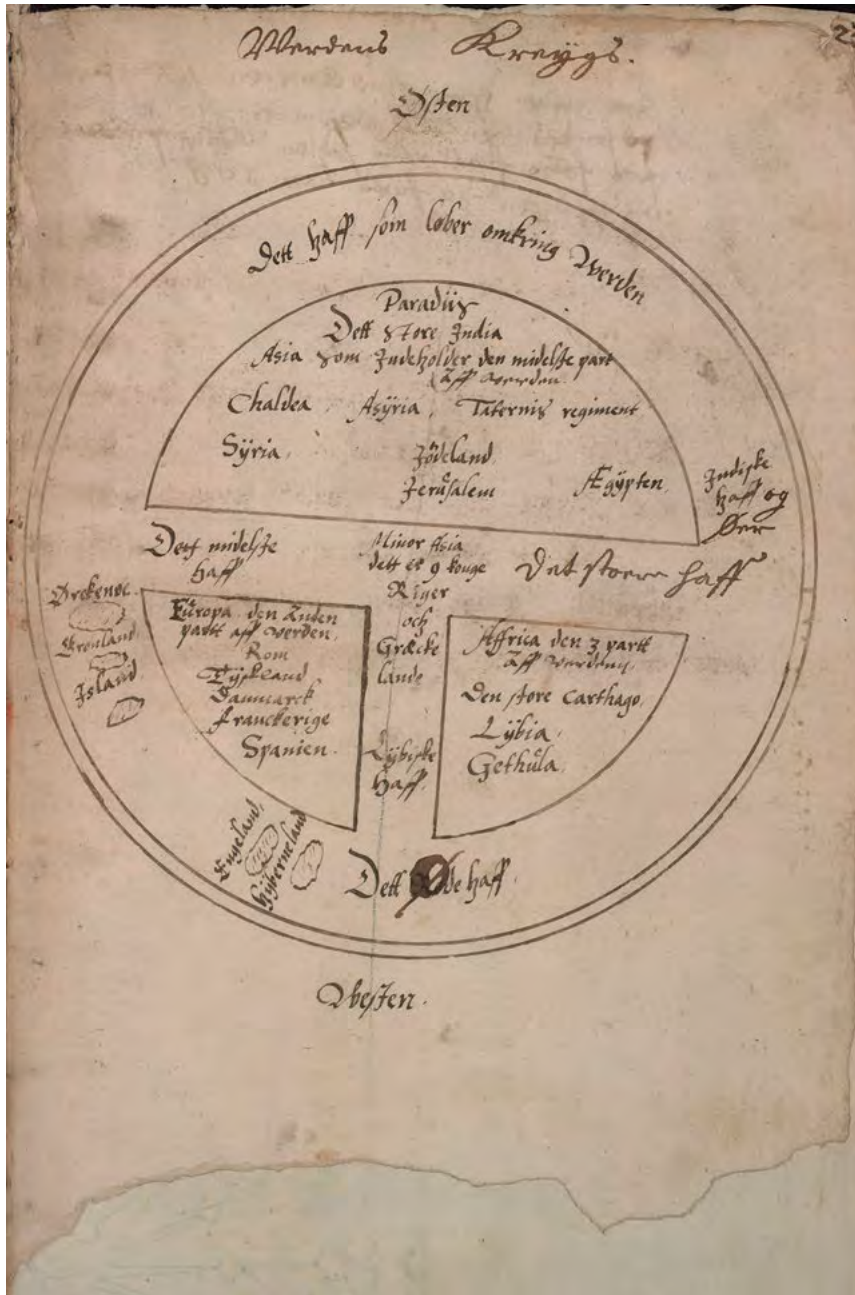 Werdens Kreÿgs.
Østen
Dett haff som løber omkring Werden
Paradiis
Dett store India
Asia som Indeholder den midelste part
aff werden.
Chaldea, Asÿria, Taternis regiment
Sÿria, Jødeland
Jerusalem Ægÿpten,
Indiske
haff og
Øer
Dett midelste
haff
Minor Asia
dett er 9 konge
Riger
och
Græcke
lande
Det store haff
Ørckenøe.
Gronland
Island
Europa, den Anden
partt aff werden,
Rom
Tÿskeland
Danmarck
Franckerige
Spanien.
Affrica den 3 partt
aff werden,
Den store Carthago,
Lÿbia,
Gethula,
Lÿbiske
haff,
Engeland,
Hÿberneland
Dett de haff.
Westen.